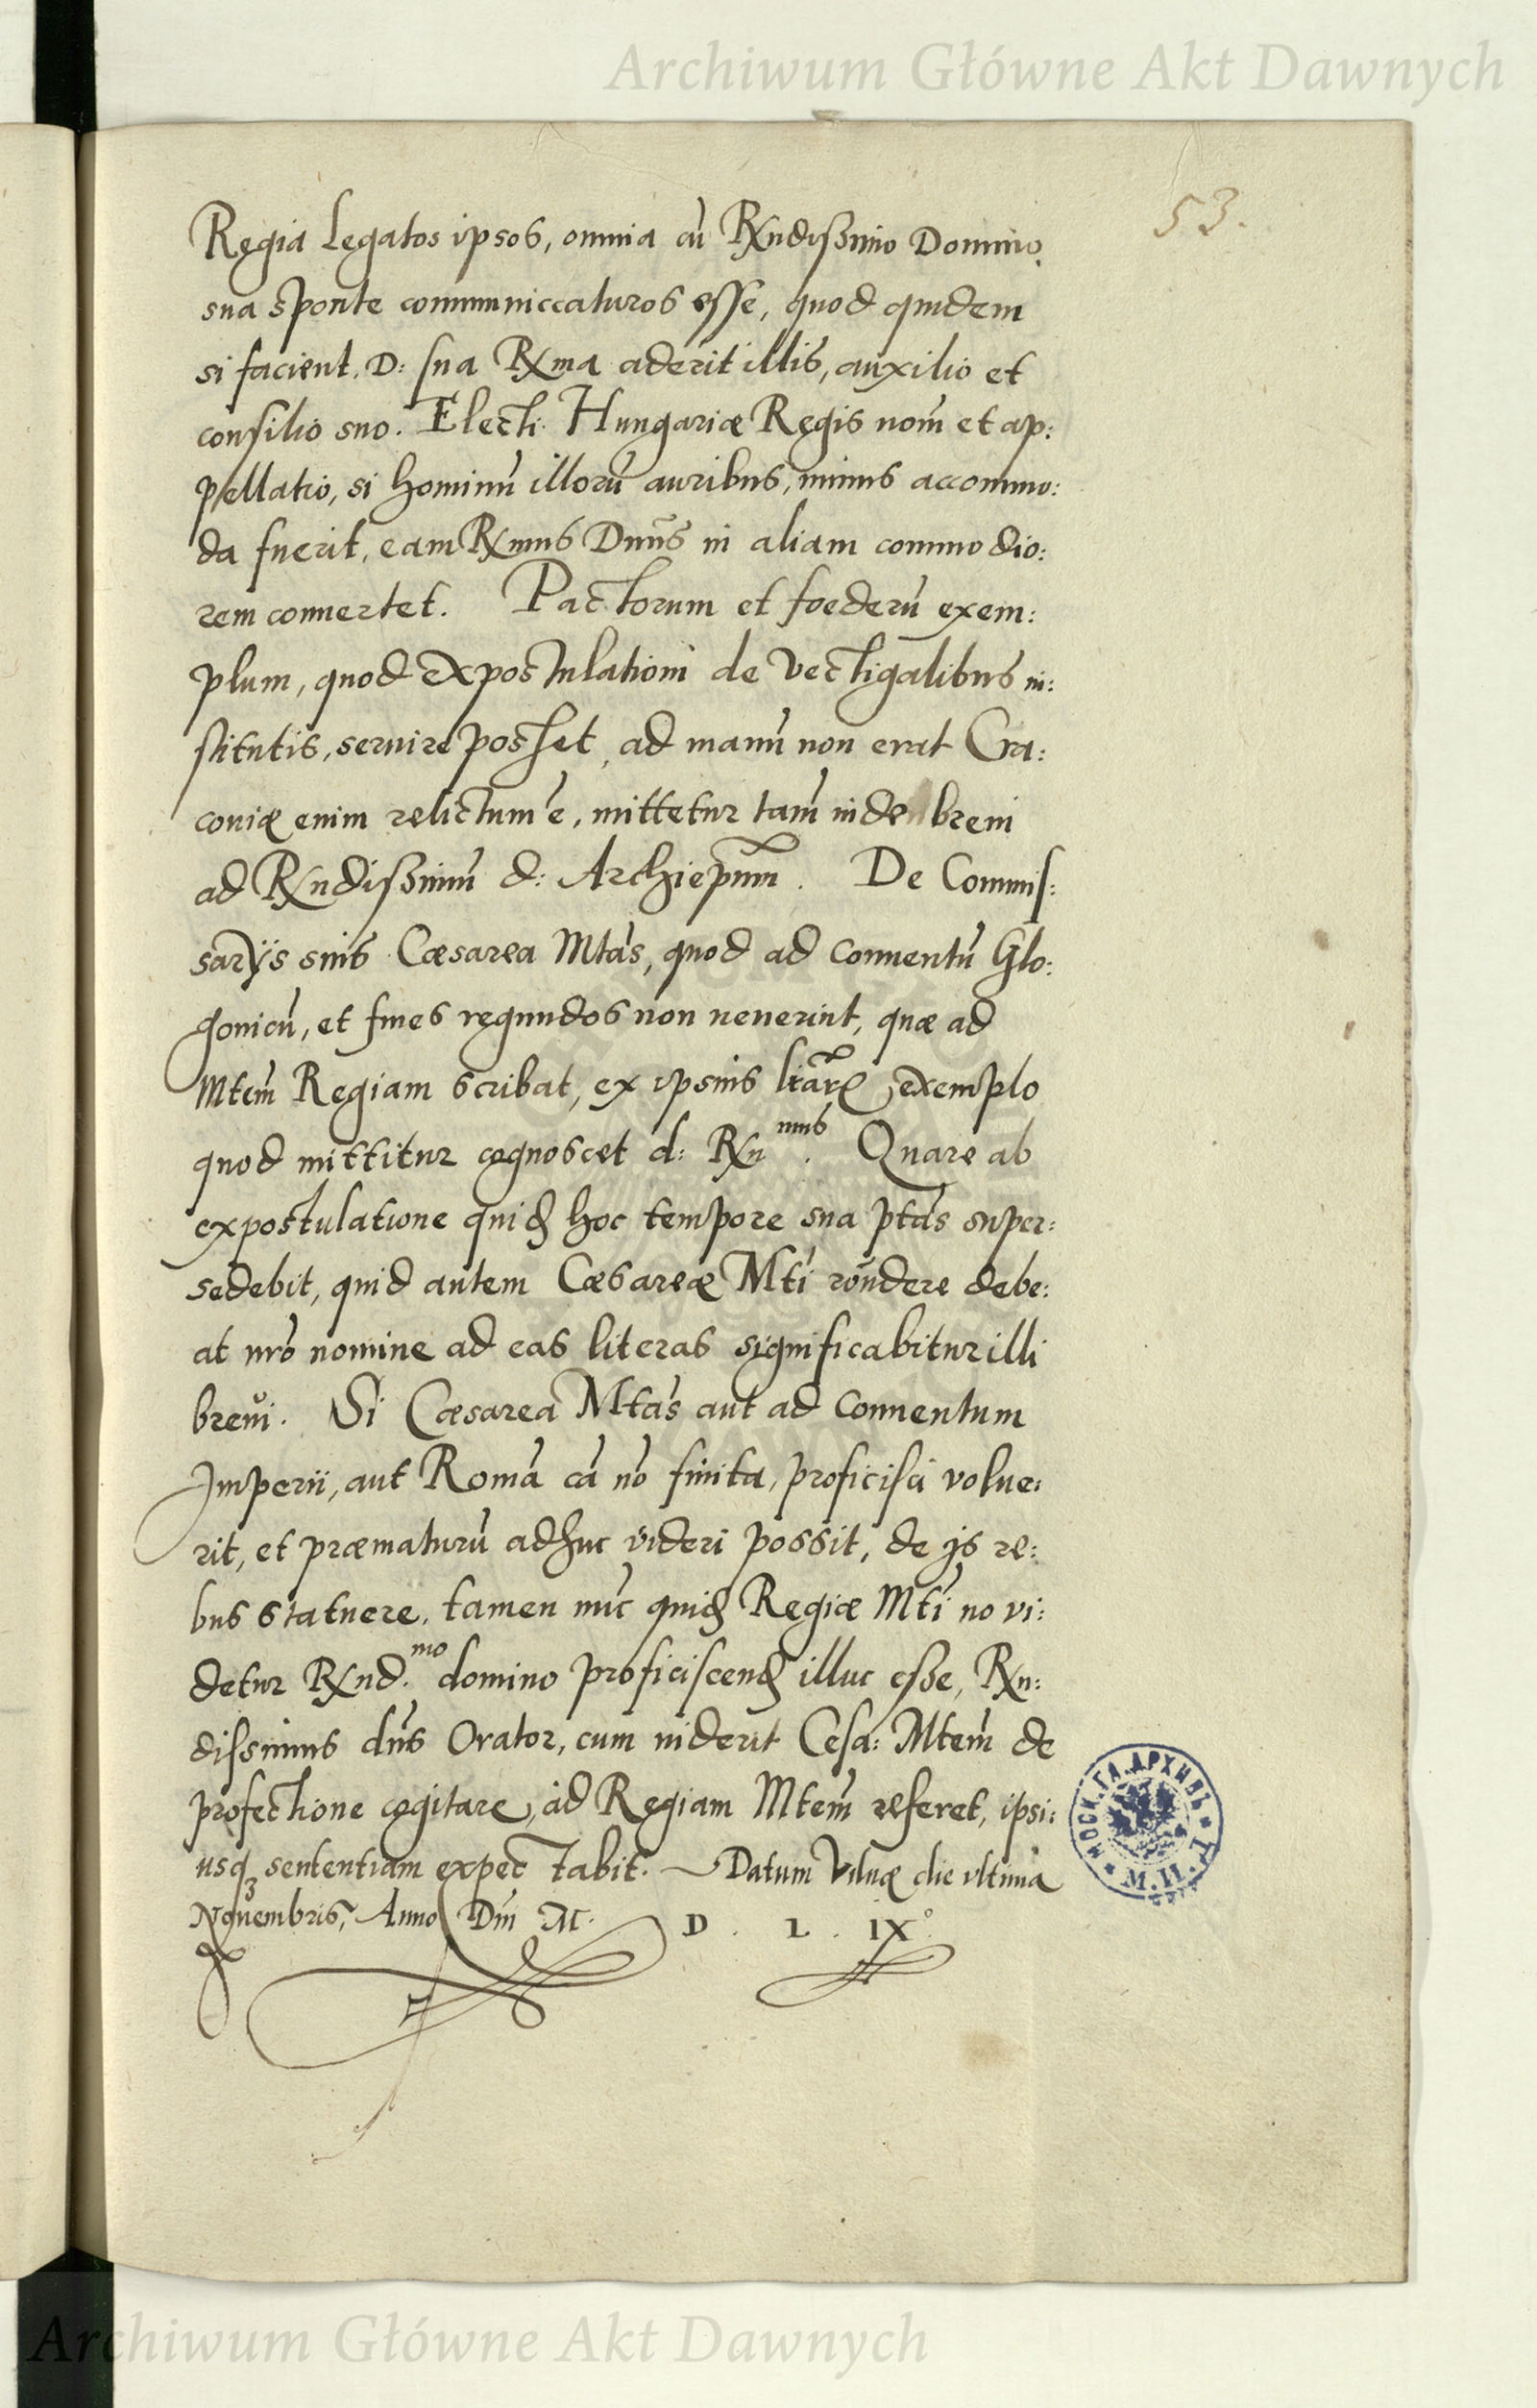 Archiwum Główne Akt Dawnych
53.
Regia Legatos ipsos, omnia cū Rxndißimo Domino
sua sponte communiccaturos esse, quod quidem
si facient. D: sua Rxma aderit illis, auxilio et
consilio suo. Electi Hungariæ Regis nom̄ et ap:
pellatio, si hominū illorū auribus, minus accommo:
da fuerit, eam Rxmus Dnūs in aliam commodio:
rem conuertet. Pactorum et foederū exem:
plum, quod expostulationi de Vectigalibus in:
stitutis, seruire posset, ad manū non erat Cra:
couiæ enim relictum ē, mittetur tam̄ inde breui
ad Rxndißimū d: Archiepūm. De Commis:
sarÿs suis Cæsarea Mtas, quod ad Conuentū Glo:
gouicū, et fines regundos non uenerint, quæ ad
Mtem̄ Regiam scribat, ex ipsius lrārꝝ exemplo
quod mittitur cognoscet d: Rxn mus. Quare ab
expostulatione quid hoc tempore sua ptas super:
sedebit, quid autem Cæsareæ Mti rōndere debe:
at nrō nomine ad eas literas significabitur illi
breui. Si Cæsarea Mtas aut ad Conuentum
Imperii, aut Romā cā nō finita, proficisci volue:
rit, et præmaturū adhuc videri possit, de ijs re:
bus statuere, tamen nūc quid Regiæ Mti no vi:
detur Rxnd.mo domino proficiscend illuc esse, Rxn:
dissimus dnūs Orator, cum uiderit Cesa: Mtem̄ de
profectione cogitare, ad Regiam Mtem̄ referet, ipsi:
usqꝫ sententiam expectabit. Datum Vilnæ die ultima
Nouembris, Anno Dni M. D. L. IX°.
МОСК. ГЛ. АРХИВЪ
М. И. Д.
Archiwum Główne Akt Dawnych